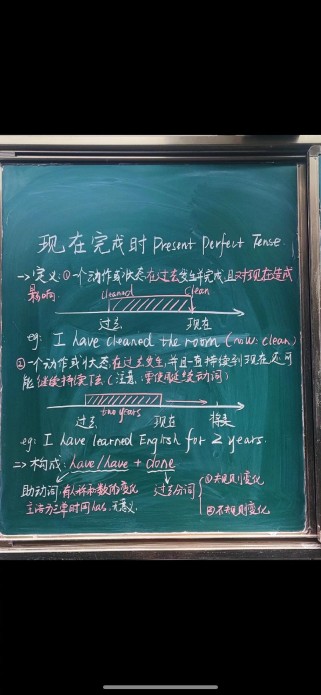 现在完成时 Present Perfect Tense
→定义:①一个动作或状态在过去发生并完成,且对现在造成
影响.
cleaned clean
过去 现在
eg: I have cleaned the room (now: clean)
②一个动作或状态在过去发生,并且一直持续到现在还可
能继续持续下去(注意:要使用延续动词)
two years
过去 现在 将来
eg: I have learned English for 2 years.
⇒构成: have/have + done
助动词:有人称和数的变化 过去分词 ①规则变化
主语为三单时用has.无意义. ②不规则变化